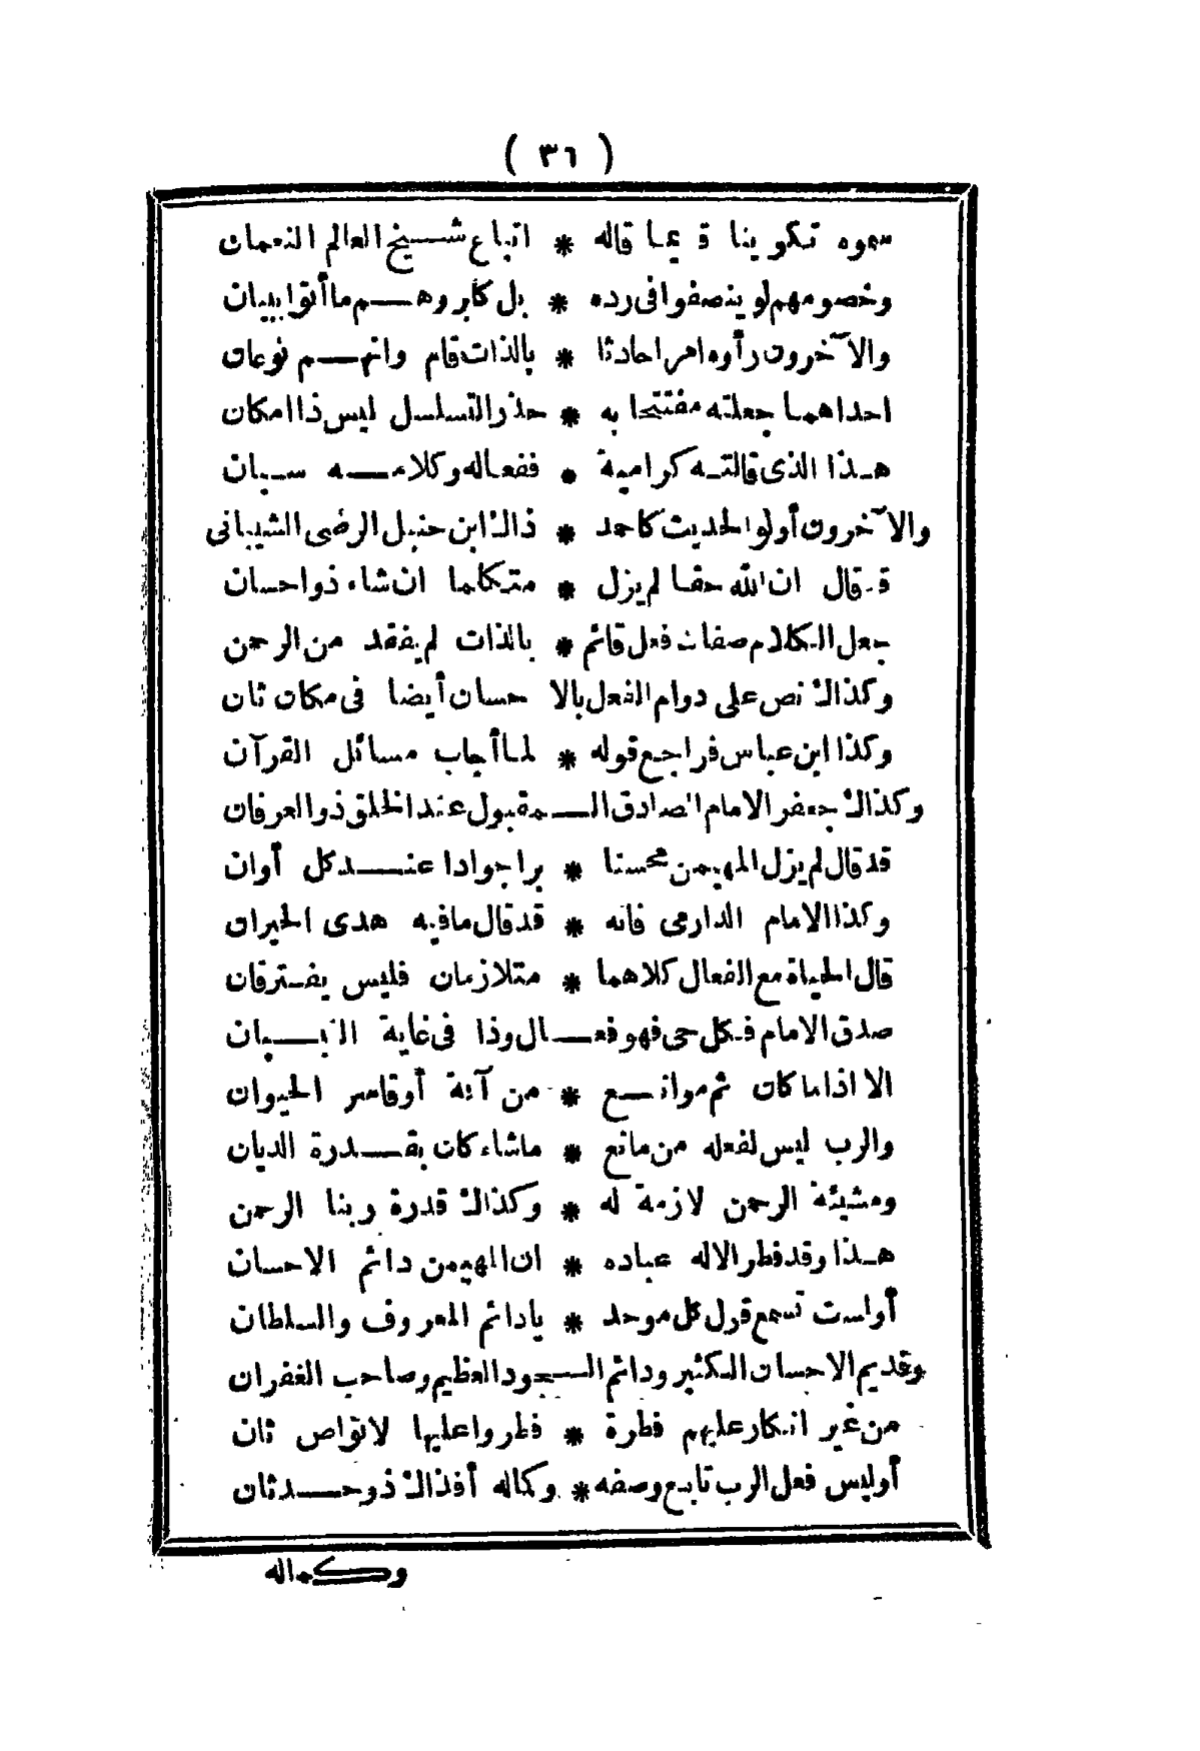 ( ٣٦ )
سموه تكوينا قديما قاله * اتباع شيخ العالم النعمان
وخصومهم لو ينصفوا فى رده * بل كابروهم ما أتوا ببيان
والآخرون رأوه امرا حادثا * بالذات قام وانهم نوعان
احداهما جعلته مفتتحا به * حذر التسلسل ليس ذا امكان
هذا الذى قالته كرامية * ففعاله وكلامه سيان
والآخرون أولو الحديث كاحمد * ذاك ابن حنبل الرضى الشيبانى
قد قال ان الله حقا لم يزل * متكلما ان شاء ذو احسان
جعل الكلام صفات فعل قائم * بالذات لم يفقد من الرحمن
وكذاك نص على دوام الفعل بالا حسان أيضا فى مكان ثان
وكذا ابن عباس فراجع قوله * لما أجاب مسائل القرآن
وكذاك جعفر الامام الصادق المقبول عند الخلق ذو العرفان
قد قال لم يزل المهيمن محسنا * برا جوادا عند كل أوان
وكذا الامام الدارمى فانه * قد قال ما فيه هدى الحيران
قال الحياة مع الفعال كلاهما * متلازمان فليس يفترقان
صدق الامام فكل حى فهو فعال وذا فى غاية التبيان
الا اذا ما كان ثم موانع * من آفة أو قاسر الحيوان
والرب ليس لفعله من مانع * ماشاء كان بقدرة الديان
ومشيئة الرحمن لازمة له * وكذاك قدرة ربنا الرحمن
هذا وقد فطر الاله عباده * ان المهيمن دائم الاحسان
أولست تسمع قول كل موحد * يادائم المعروف والسلطان
وقديم الاحسان الكثير ودائم الجود العظيم وصاحب الغفران
من غير انكار عليهم فطرة * فطروا عليها لا تواص ثان
أوليس فعل الرب تابع وصفه * وكماله أفذاك ذو حدثان
وكماله